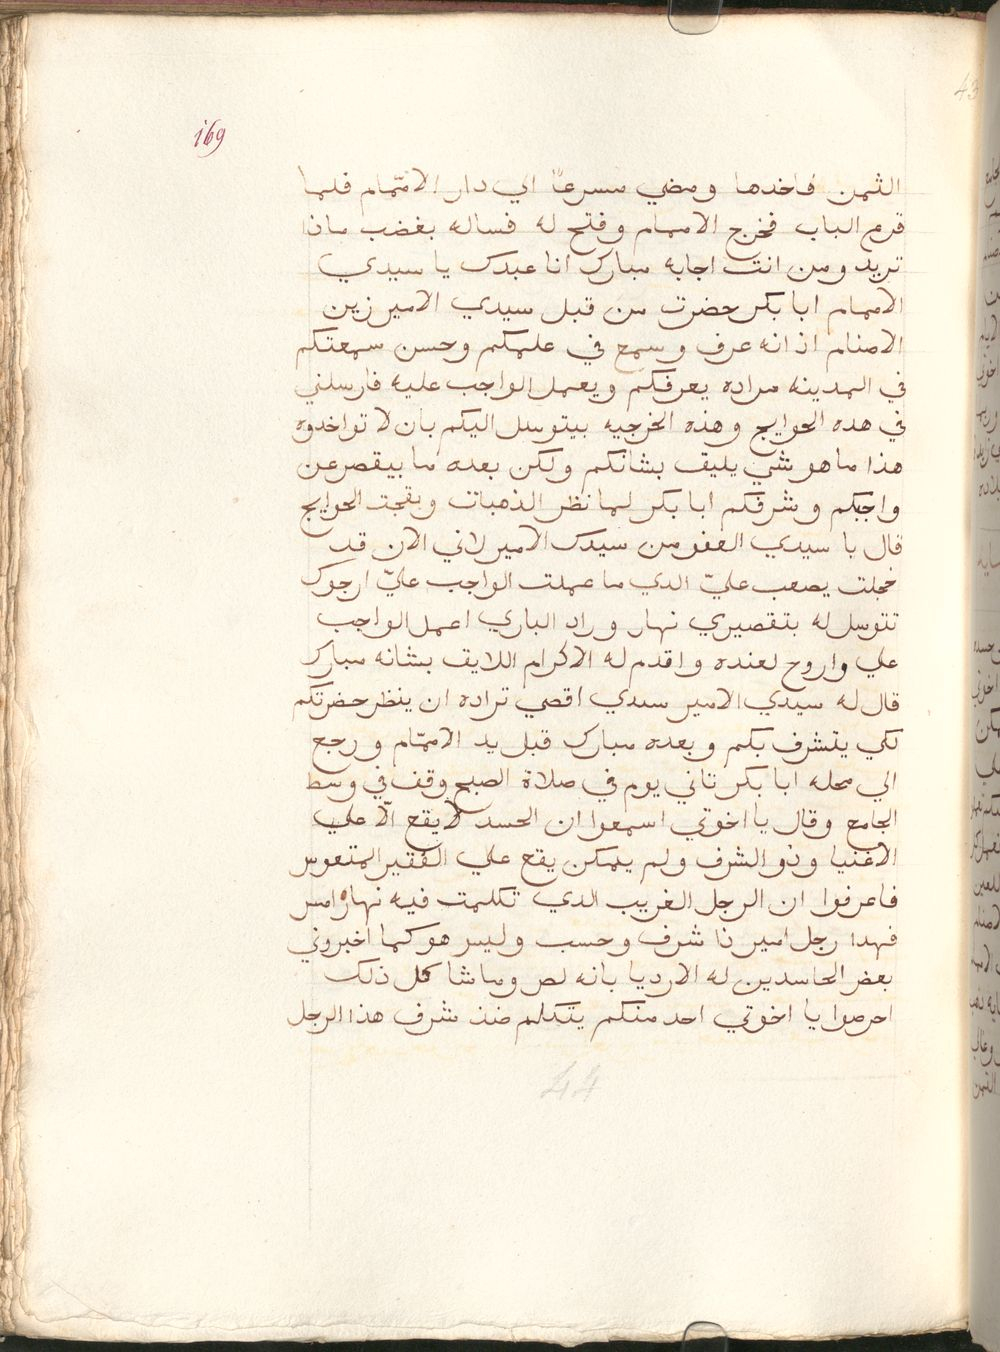 169
الثمن فاخدها ومضي مسرعاً الي دار الامّام فلما
قرع الباب فخرج الامام وفتح له فساله بغضب ماذا
تريد ومن انت اجابه مبارك انا عبدك يا سيدي
الامام ابا بكر حضرت من قبل سيدي الامير زين
الاصنام اذ انه عرف وسمع في علمكم وحسن سمعتكم
في المدينه مراده يعرفكم ويعمل الواجب عليه فارسلني
في هده الحوايج وهذه الخرجيه بيتوسل اليكم بان لا تواخدوه
هذا ما هو شي يليق بشانكم ولكن بعده ما بيقصر عن
واجبكم وشرفكم ابا بكر لما نظر الذهبات وبقجت الحوايج
قال يا سيدي العفو من سيدك الامير لاني الان قد
خجلت يصعب عليّ الدي ما عملت الواجب عليّ ارجوك
تتوسل له بتقصيري نهار وراد الباري اعمل الواجب
علي واروح لعنده واقدم له الاكرام اللايق بشانه مبارك
قال له سيدي الامير سيدي اقصي تراده ان ينظر حضرتكم
لكي يتشرف بكم وبعده مبارك قبل يد الامّام ورجع
الي محله ابا بكر تاني يوم في صلاة الصبح وقف في وسط
الجامع وقال يا اخوتي اسمعوا ان الحسد لا يقع الّا علي
الاغنيا وذو الشرف ولم يمكن يقع علي الفقير المتعوس
فاعرفوا ان الرجل الغريب الدي تكلمت فيه نهار امس
فهدا رجل امير ذا شرف وحسب وليس هو كما اخبروني
بعض الحاسدين له الارديا بانه لص وما شا كل ذلك
احرصوا يا اخوتي احد منكم يتكلم ضد شرف هذا الرجل
44
43